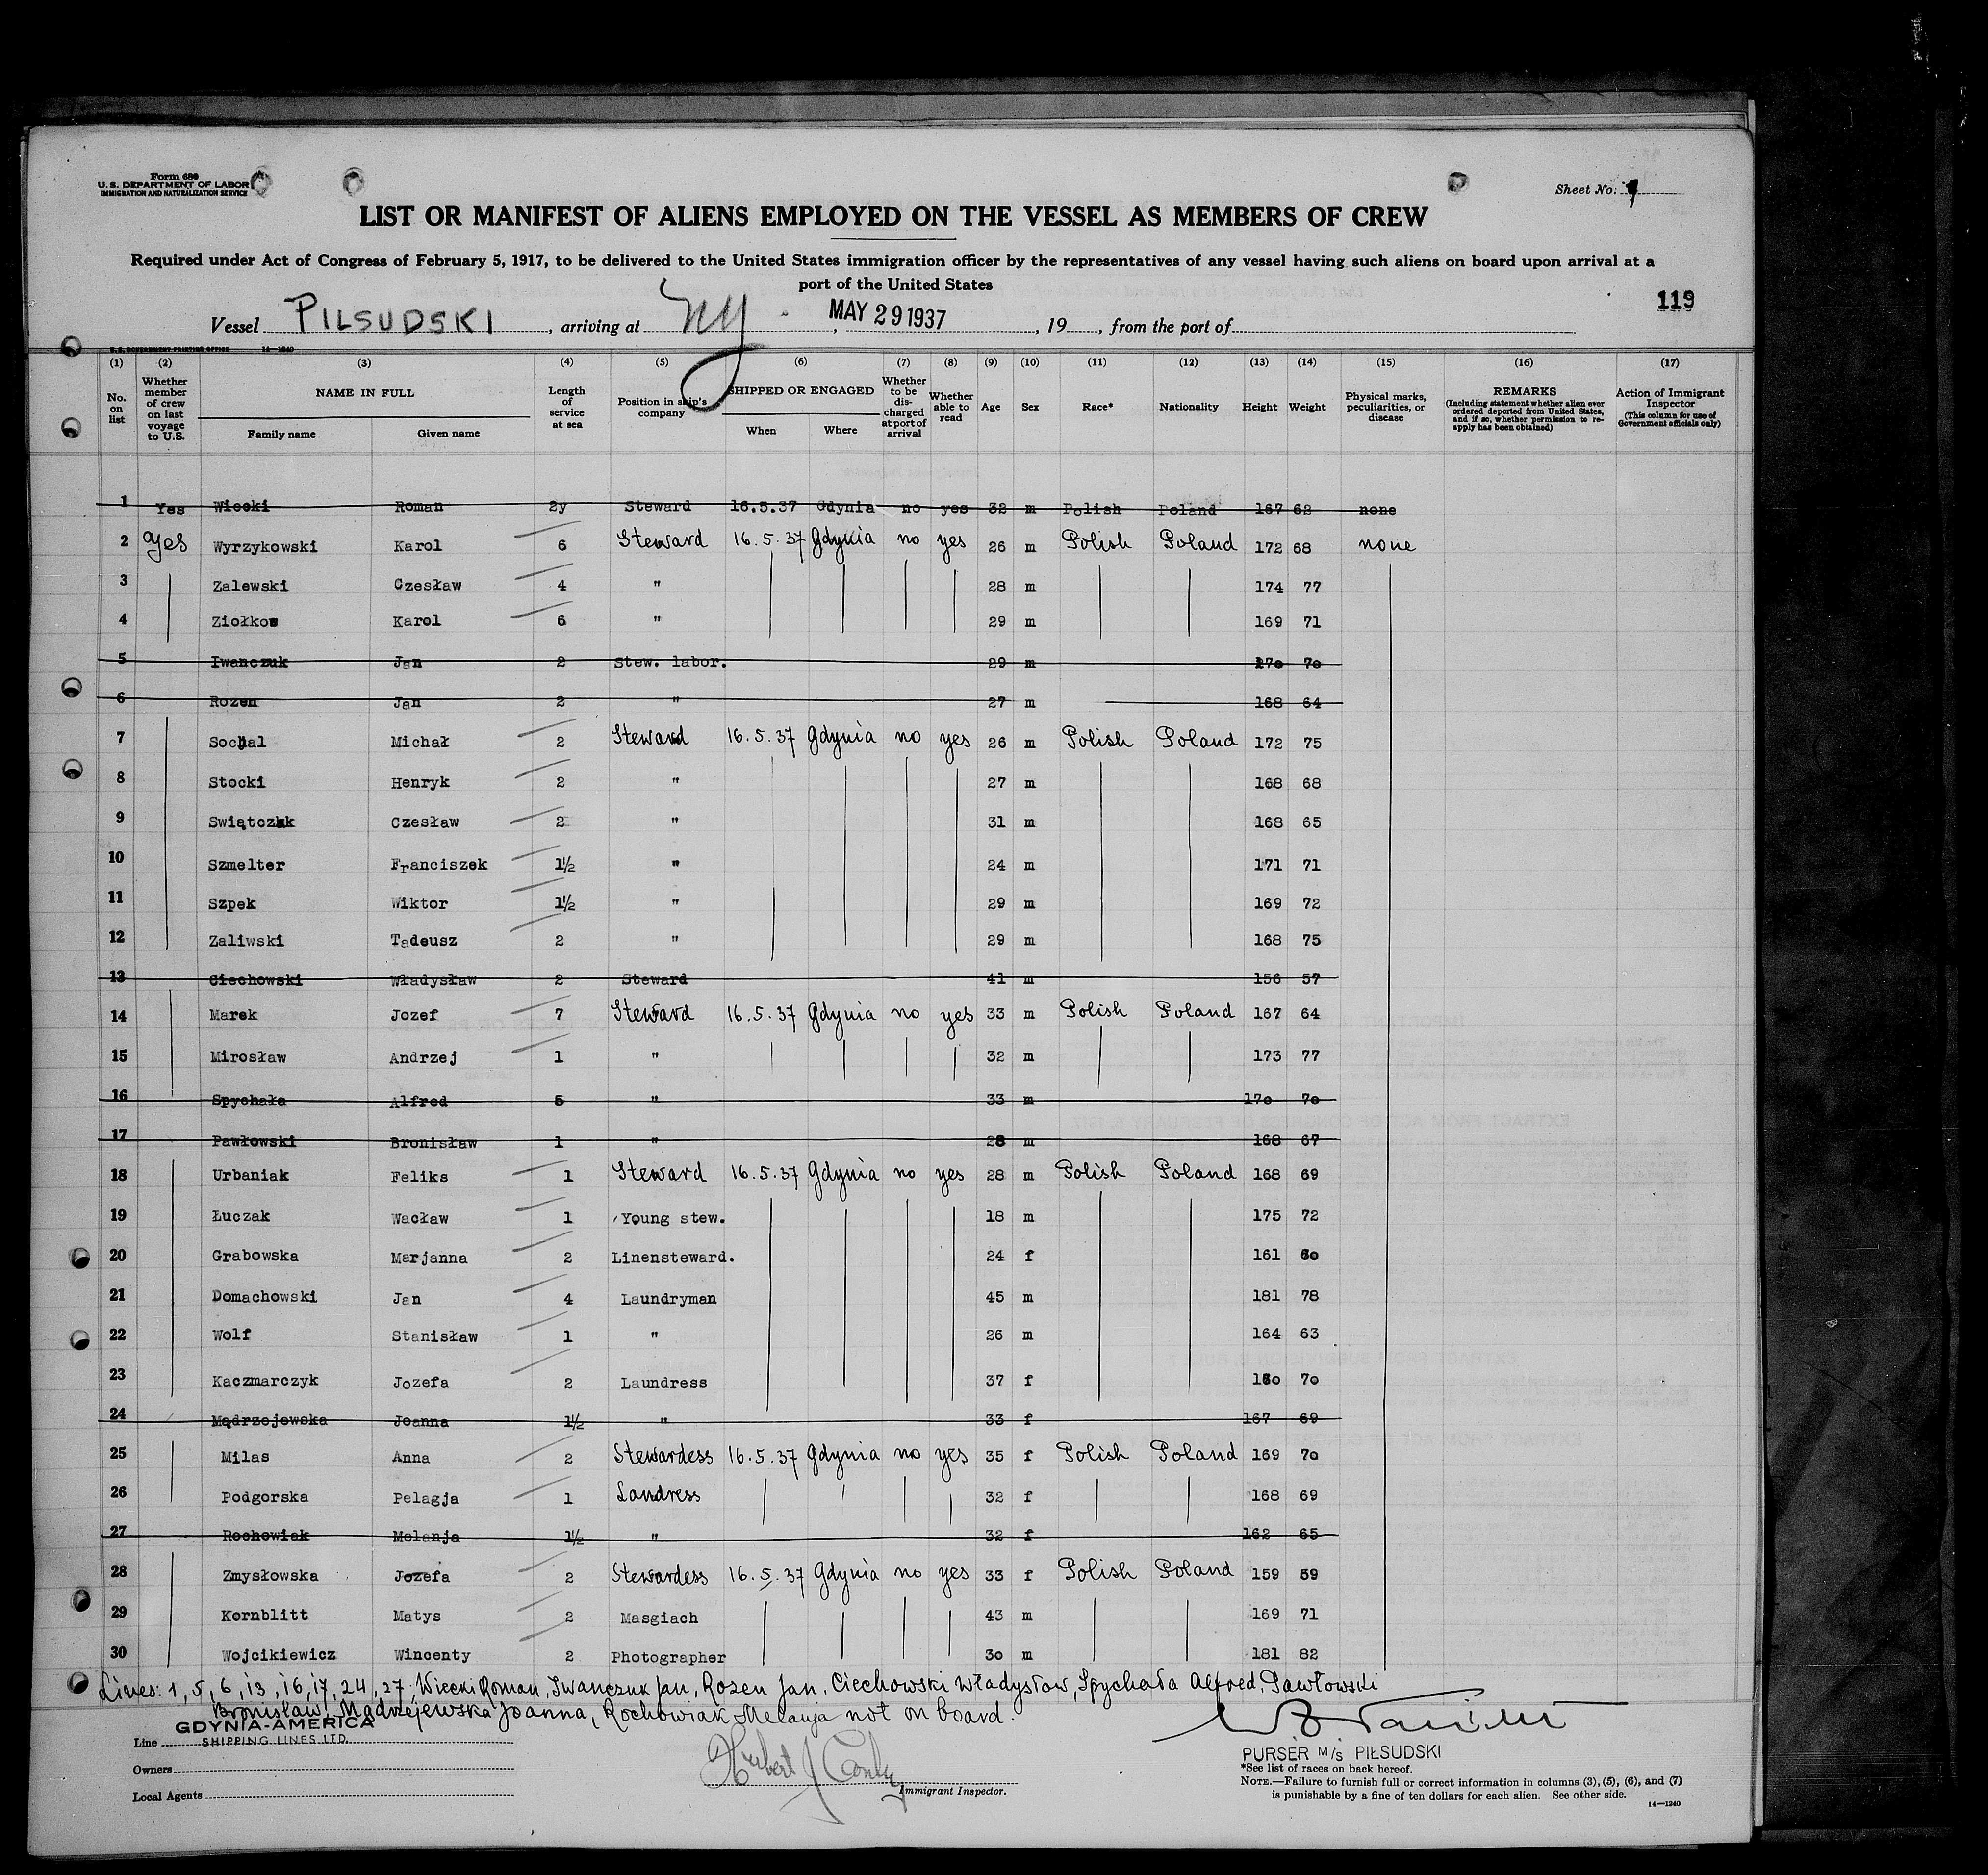 Form 680
U. S. DEPARTMENT OF LABOR
IMMIGRATION AND NATURALIZATION SERVICE
Sheet No.
LIST OR MANIFEST OF ALIENS EMPLOYED ON THE VESSEL AS MEMBERS OF CREW
Required under Act of Congress of February 5, 1917, to be delivered to the United States immigration officer by the representatives of any vessel having such aliens on board upon arrival at a
port of the United States
119
Vessel PILSUDSKI, arriving at NY, MAY 29 1937, 19, from the port of
U.S. GOVERNMENT PRINTING OFFICE 14—1240
(1) (2) (3) (4) (5) (6) (7) (8) (9) (10) (11) (12) (13) (14) (15) (16) (17)
No. on list
Whether member of crew on last voyage to U.S.
NAME IN FULL
Family name Given name
Length of service at sea
Position in ship's company
SHIPPED OR ENGAGED
When Where
Whether to be discharged at port of arrival
Whether able to read
Age Sex Race* Nationality Height Weight
Physical marks, peculiarities, or disease
REMARKS
(Including statement whether alien ever ordered deported from United States, and if so, whether permission to reapply has been obtained)
Action of Immigrant Inspector
(This column for use of Government officials only)
1 Yes Wiecki Roman 2y Steward 16.5.37 Gdynia no yes 32 m Polish Poland 167 62 none
2 yes Wyrzykowski Karol 6 Steward 16.5.37 Gdynia no yes 26 m Polish Poland 172 68 none
3 Zalewski Czesław 4 " 28 m 174 77
4 Ziołkow Karol 6 " 29 m 169 71
5 Iwanczuk Jan 2 Stew. labor. 29 m 170 70
6 Rozen Jan 2 " 27 m 168 64
7 Sochal Michał 2 Steward 16.5.37 Gdynia no yes 26 m Polish Poland 172 75
8 Stocki Henryk 2 " 27 m 168 68
9 Swiątczak Czesław 2 " 31 m 168 65
10 Szmelter Franciszek 1½ " 24 m 171 71
11 Szpek Wiktor 1½ " 29 m 169 72
12 Zaliwski Tadeusz 2 " 29 m 168 75
13 Ciechowski Władysław 2 Steward 41 m 156 57
14 Marek Jozef 7 Steward 16.5.37 Gdynia no yes 33 m Polish Poland 167 64
15 Mirosław Andrzej 1 " 32 m 173 77
16 Spychała Alfred 5 " 33 m 170 70
17 Pawłowski Bronisław 1 " 28 m 168 67
18 Urbaniak Feliks 1 Steward 16.5.37 Gdynia no yes 28 m Polish Poland 168 69
19 Łuczak Wacław 1 Young stew. 18 m 175 72
20 Grabowska Marjanna 2 Linensteward. 24 f 161 60
21 Domachowski Jan 4 Laundryman 45 m 181 78
22 Wolf Stanisław 1 " 26 m 164 63
23 Kaczmarczyk Jozefa 2 Laundress 37 f 160 70
24 Mądrzejewska Joanna 1½ " 33 f 167 69
25 Milas Anna 2 Stewardess 16.5.37 Gdynia no yes 35 f Polish Poland 169 70
26 Podgorska Pelagja 1 Landress 32 f 168 69
27 Rochowiak Melanja 1½ " 32 f 162 65
28 Zmysłowska Jozefa 2 Stewardess 16.5.37 Gdynia no yes 33 f Polish Poland 159 59
29 Kornblitt Matys 2 Masgiach 43 m 169 71
30 Wojcikiewicz Wincenty 2 Photographer 30 m 181 82
Lines: 1, 5, 6, 13, 16, 17, 24, 27; Wiecki Roman, Iwanczuk Jan, Rozen Jan, Ciechowski Władysław, Spychała Alfred, Pawłowski
Bronisław, Mądrzejewska Joanna, Rochowiak Melanja not on board.
Line GDYNIA-AMERICA
SHIPPING LINES LTD.
Owners
Local Agents
Immigrant Inspector.
PURSER M/S PIŁSUDSKI
*See list of races on back hereof.
NOTE.—Failure to furnish full or correct information in columns (3), (5), (6), and (7)
is punishable by a fine of ten dollars for each alien. See other side.
14—1240